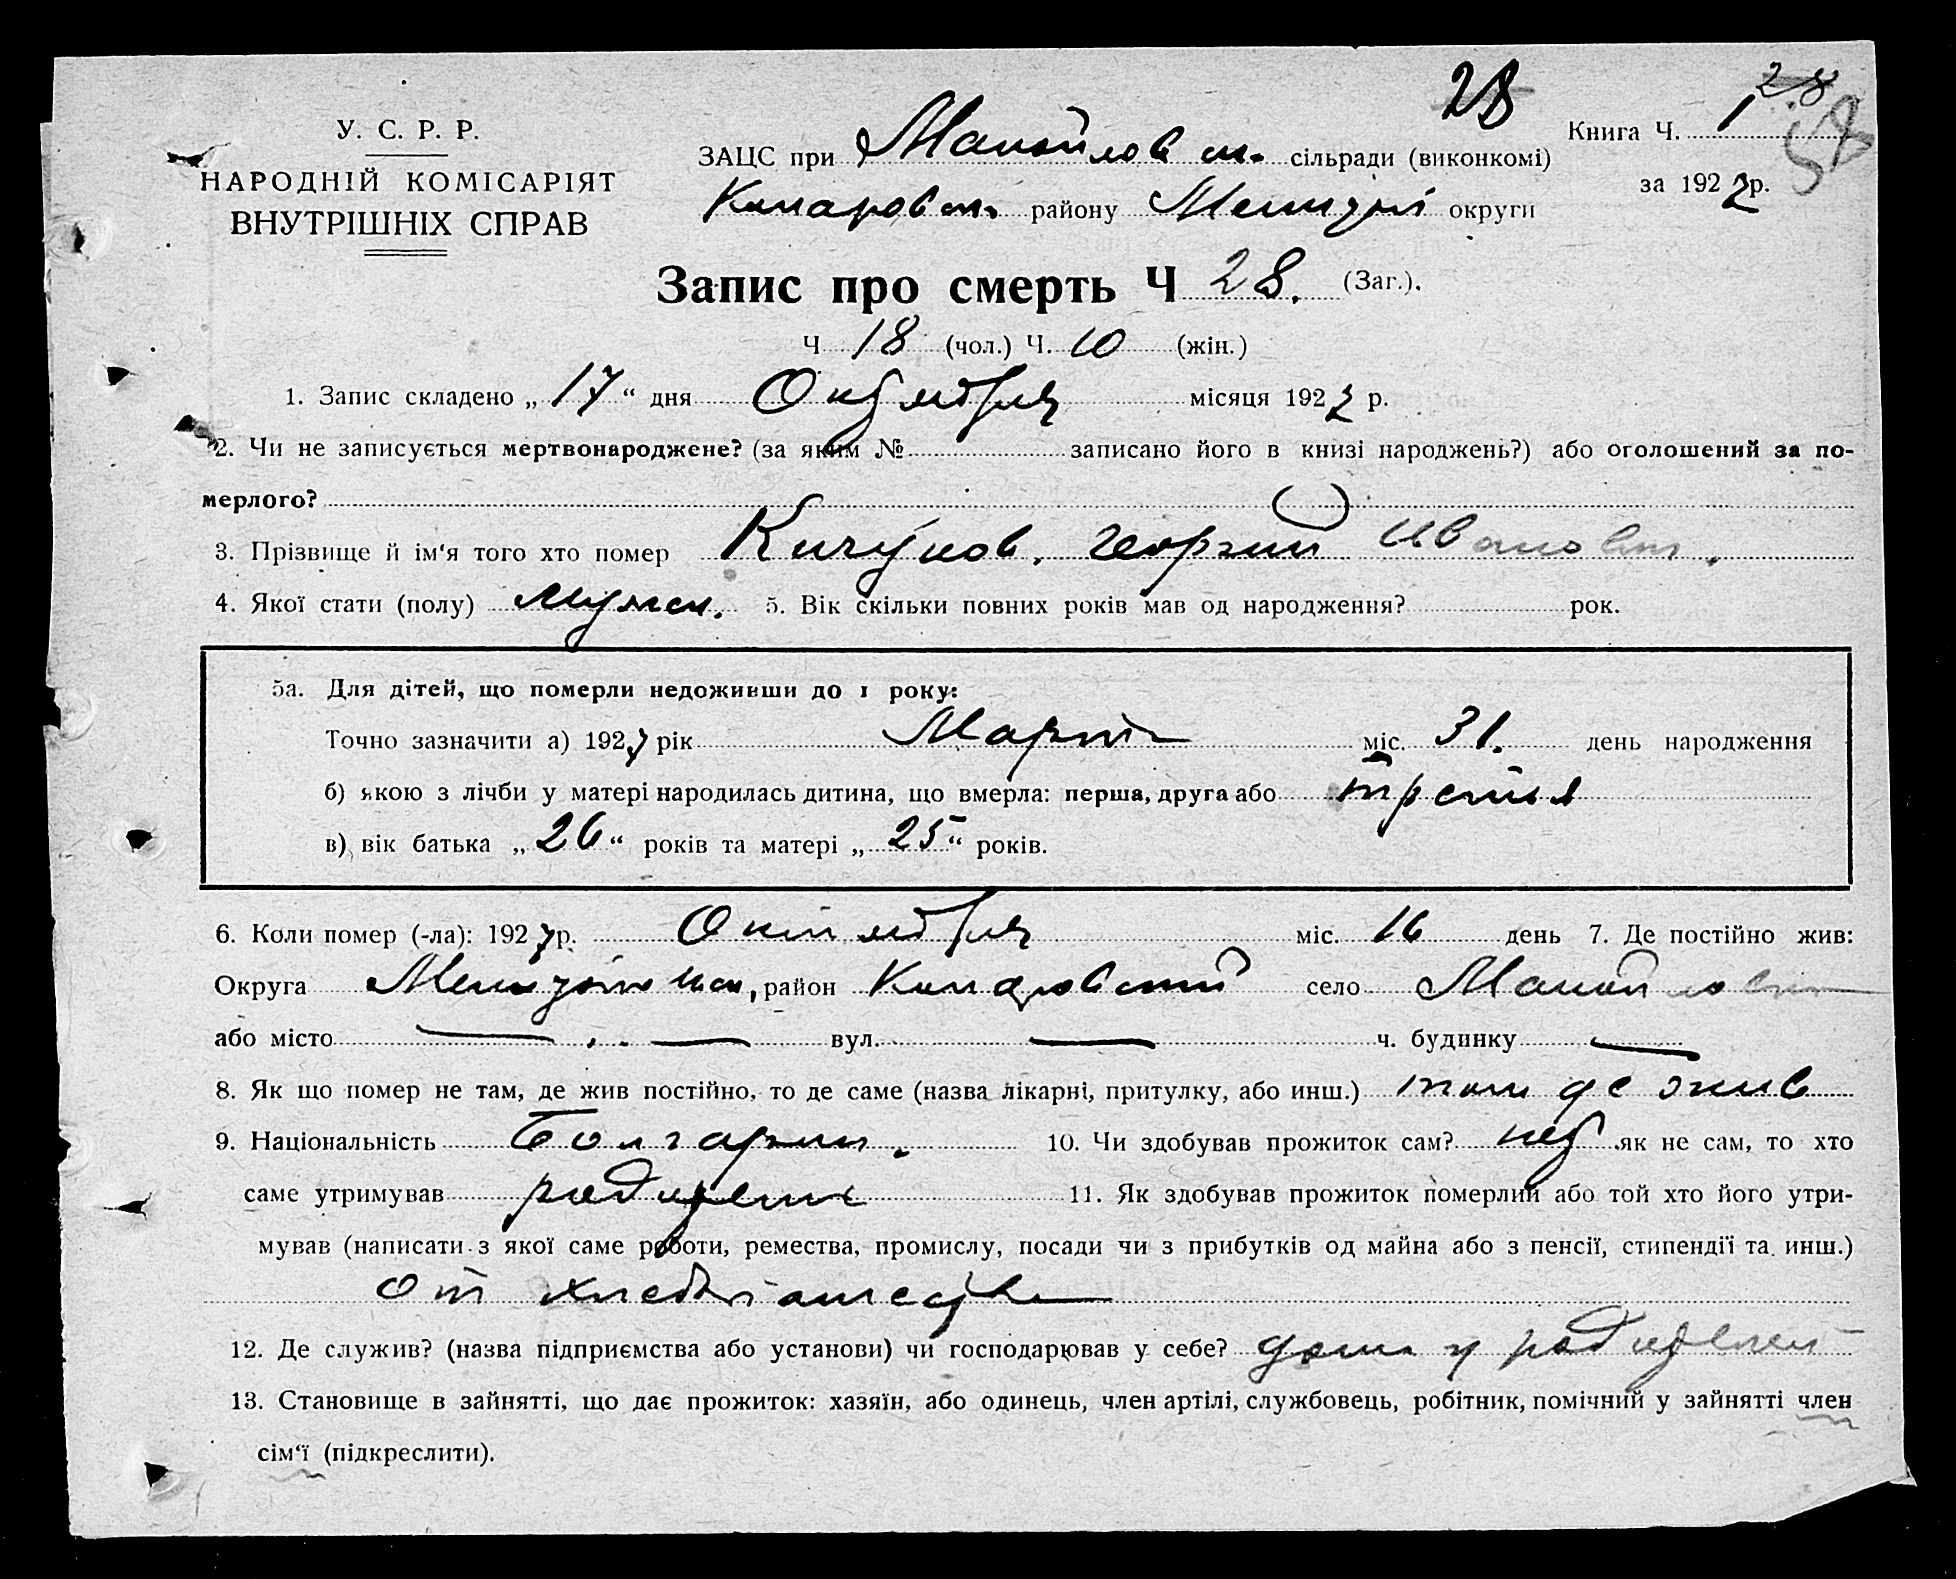 28
28
58
У. С. Р. Р.
НАРОДНІЙ КОМІСАРІЯТ
ВНУТРІШНІХ СПРАВ
Книга Ч. 1
за 1927 р.
ЗАЦС при Манойловск. сільради (виконкомі)
району округи
Запис про смерть Ч 28. (Заг.).
Ч 18 (чол.) Ч. 10 (жін.)
1. Запис складено „ 17 “ дня Октября місяця 1927 р.
2. Чи не записується мертвонароджене? (за яким № записано його в книзі народжень?) або оголошений за по-
мерлого?
3. Прізвище й ім'я того хто помер Кичуков. Георгий Иванович.
4. Якої стати (полу) мужск. 5. Вік скільки повних років мав од народження? рок.
5а. Для дітей, що померли недоживши до 1 року:
Точно зазначити а) 1927 рік Март міс. 31. день народження
б) якою з лічби у матері народилась дитина, що вмерла: перша, друга або третья
в) вік батька „ 26 “ років та матері „ 25 “ років.
6. Коли помер (-ла): 1927 р. Октября міс. 16 день 7. Де постійно жив:
Округа район село
або місто — вул. — ч. будинку —
8. Як що помер не там, де жив постійно, то де саме (назва лікарні, притулку, або инш.) там де жив
9. Національність Болгарин. 10. Чи здобував прожиток сам? нет як не сам, то хто
саме утримував родители 11. Як здобував прожиток померлий або той хто його утри-
мував (написати з якої саме роботи, ремества, промислу, посади чи з прибутків од майна або з пенсії, стипендії та инш.)
От хлебопашества
12. Де служив? (назва підприємства або установи) чи господарював у себе? дома у родителей
13. Становище в зайнятті, що дає прожиток: хазяїн, або одинець, член артілі, службовець, робітник, помічний у зайнятті член
сім'ї (підкреслити).